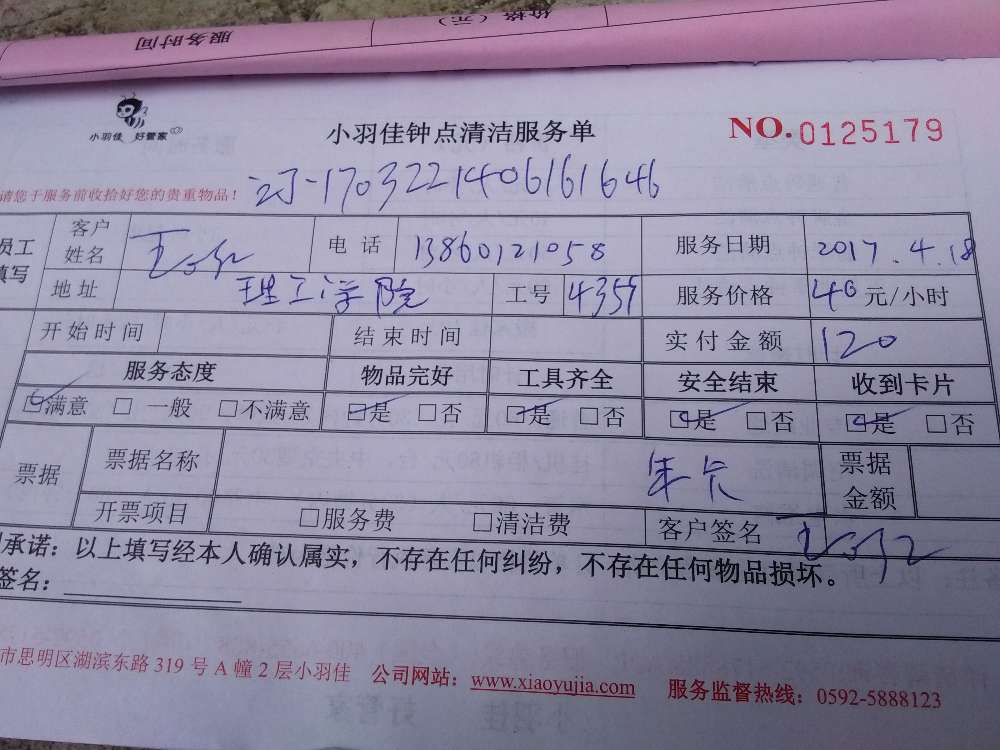 服务时间 价格（元）
小羽佳 好管家
小羽佳钟点清洁服务单
NO.0125179
请您于服务前收拾好您的贵重物品！
-1703221406161646
员工填写
客户姓名 电话 13860121058 服务日期 2017.4.18
地址 理工学院 工号 4359 服务价格 40 元/小时
开始时间 结束时间 实付金额 120
服务态度 物品完好 工具齐全 安全结束 收到卡片
☑满意 □一般 □不满意 ☑是 □否 ☑是 □否 ☑是 □否 ☑是 □否
票据 票据名称 年卡 票据金额
开票项目 □服务费 □清洁费 客户签名
承诺：以上填写经本人确认属实，不存在任何纠纷，不存在任何物品损坏。
签名：
市思明区湖滨东路 319 号 A 幢 2 层小羽佳 公司网站：www.xiaoyujia.com 服务监督热线：0592-5888123